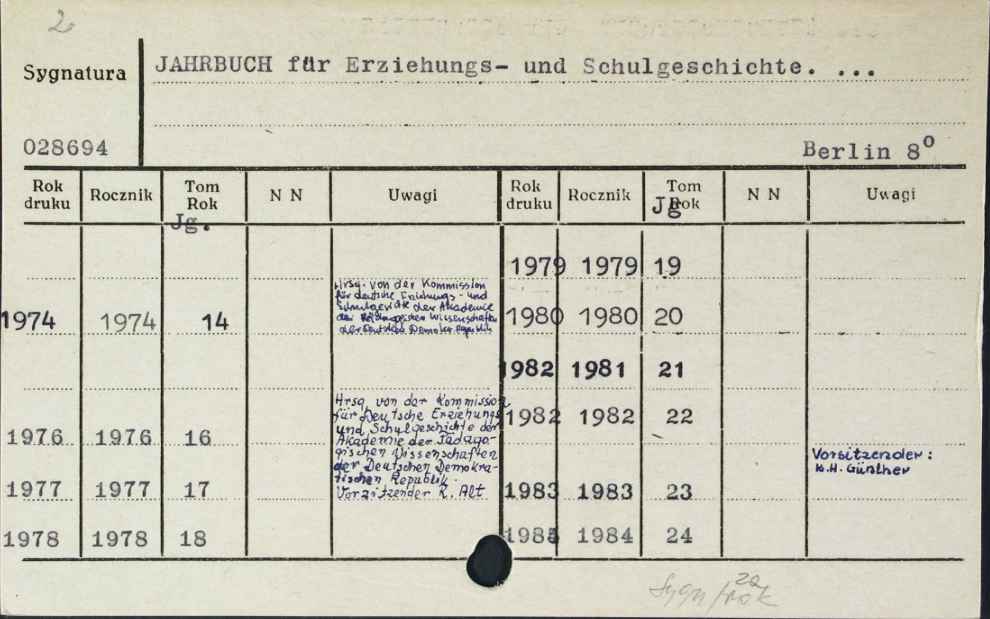 2
Sygnatura
JAHRBUCH für Erziehungs- und Schulgeschichte. ...
028694
Berlin 8º
Rok druku Rocznik Tom Rok N N Uwagi
Jg.
1974 1974 14
Hrsg. von der Kommission
für deutsche Erziehungs- und
Schulgeschichte der Akademie
der Pädagogischen Wissenschaften
der Deutschen
1976 1976 16
Hrsg. von der Kommission
für Deutsche Erziehungs
und Schulgeschichte der
Akademie der Pädago-
gischen Wissenschaften
der Deutschen Demokra-
tischen Republik.
Vorsitzender R. Alt
1977 1977 17
1978 1978 18
Rok druku Rocznik Tom Rok N N Uwagi
Jg
1979 1979 19
1980 1980 20
1982 1981 21
1982 1982 22
Vorsitzender:
K.H. Günther
1983 1983 23
1984 24
Sygn/rok